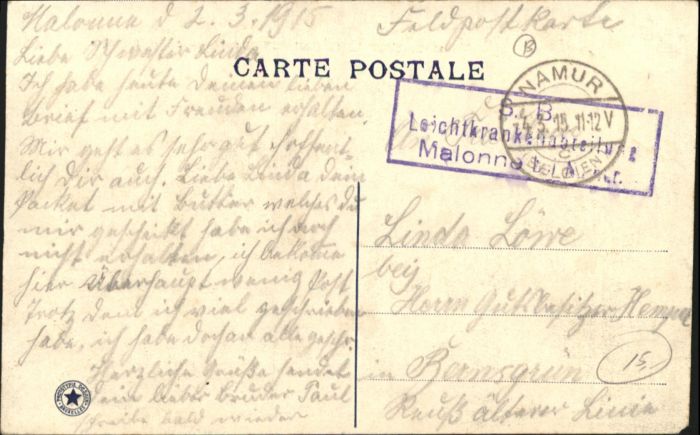 Malonne d 2.3.1915
Liebe Schwester Linda
Ich habe heute deinen lieben
Brief mit Freuden erhalten.
Mir geht es sehr gut hoffent-
lich Dir auch. Liebe Linda dein
Packet mit Butter welches du
mir geschickt habe ich noch
nicht erhalten, ich bekome
hier überhaupt wenig Post
Trotz dem ich viel geschrieben
habe, ich habe doch an alle geschr.
Herzliche Grüße sendet
dein lieber Bruder Paul
schreibe bald wieder
Feldpostkarte
B
CARTE POSTALE
NAMUR
15. 11-12 V
(BELGIEN)
S. B.
Leichtkrankenabteilung
Malonne b. Namur.
Linda Löwe
bei
Herrn Gutsbesitzer Hempel
in Bernsgrün
Reuß älterer Linie
15,